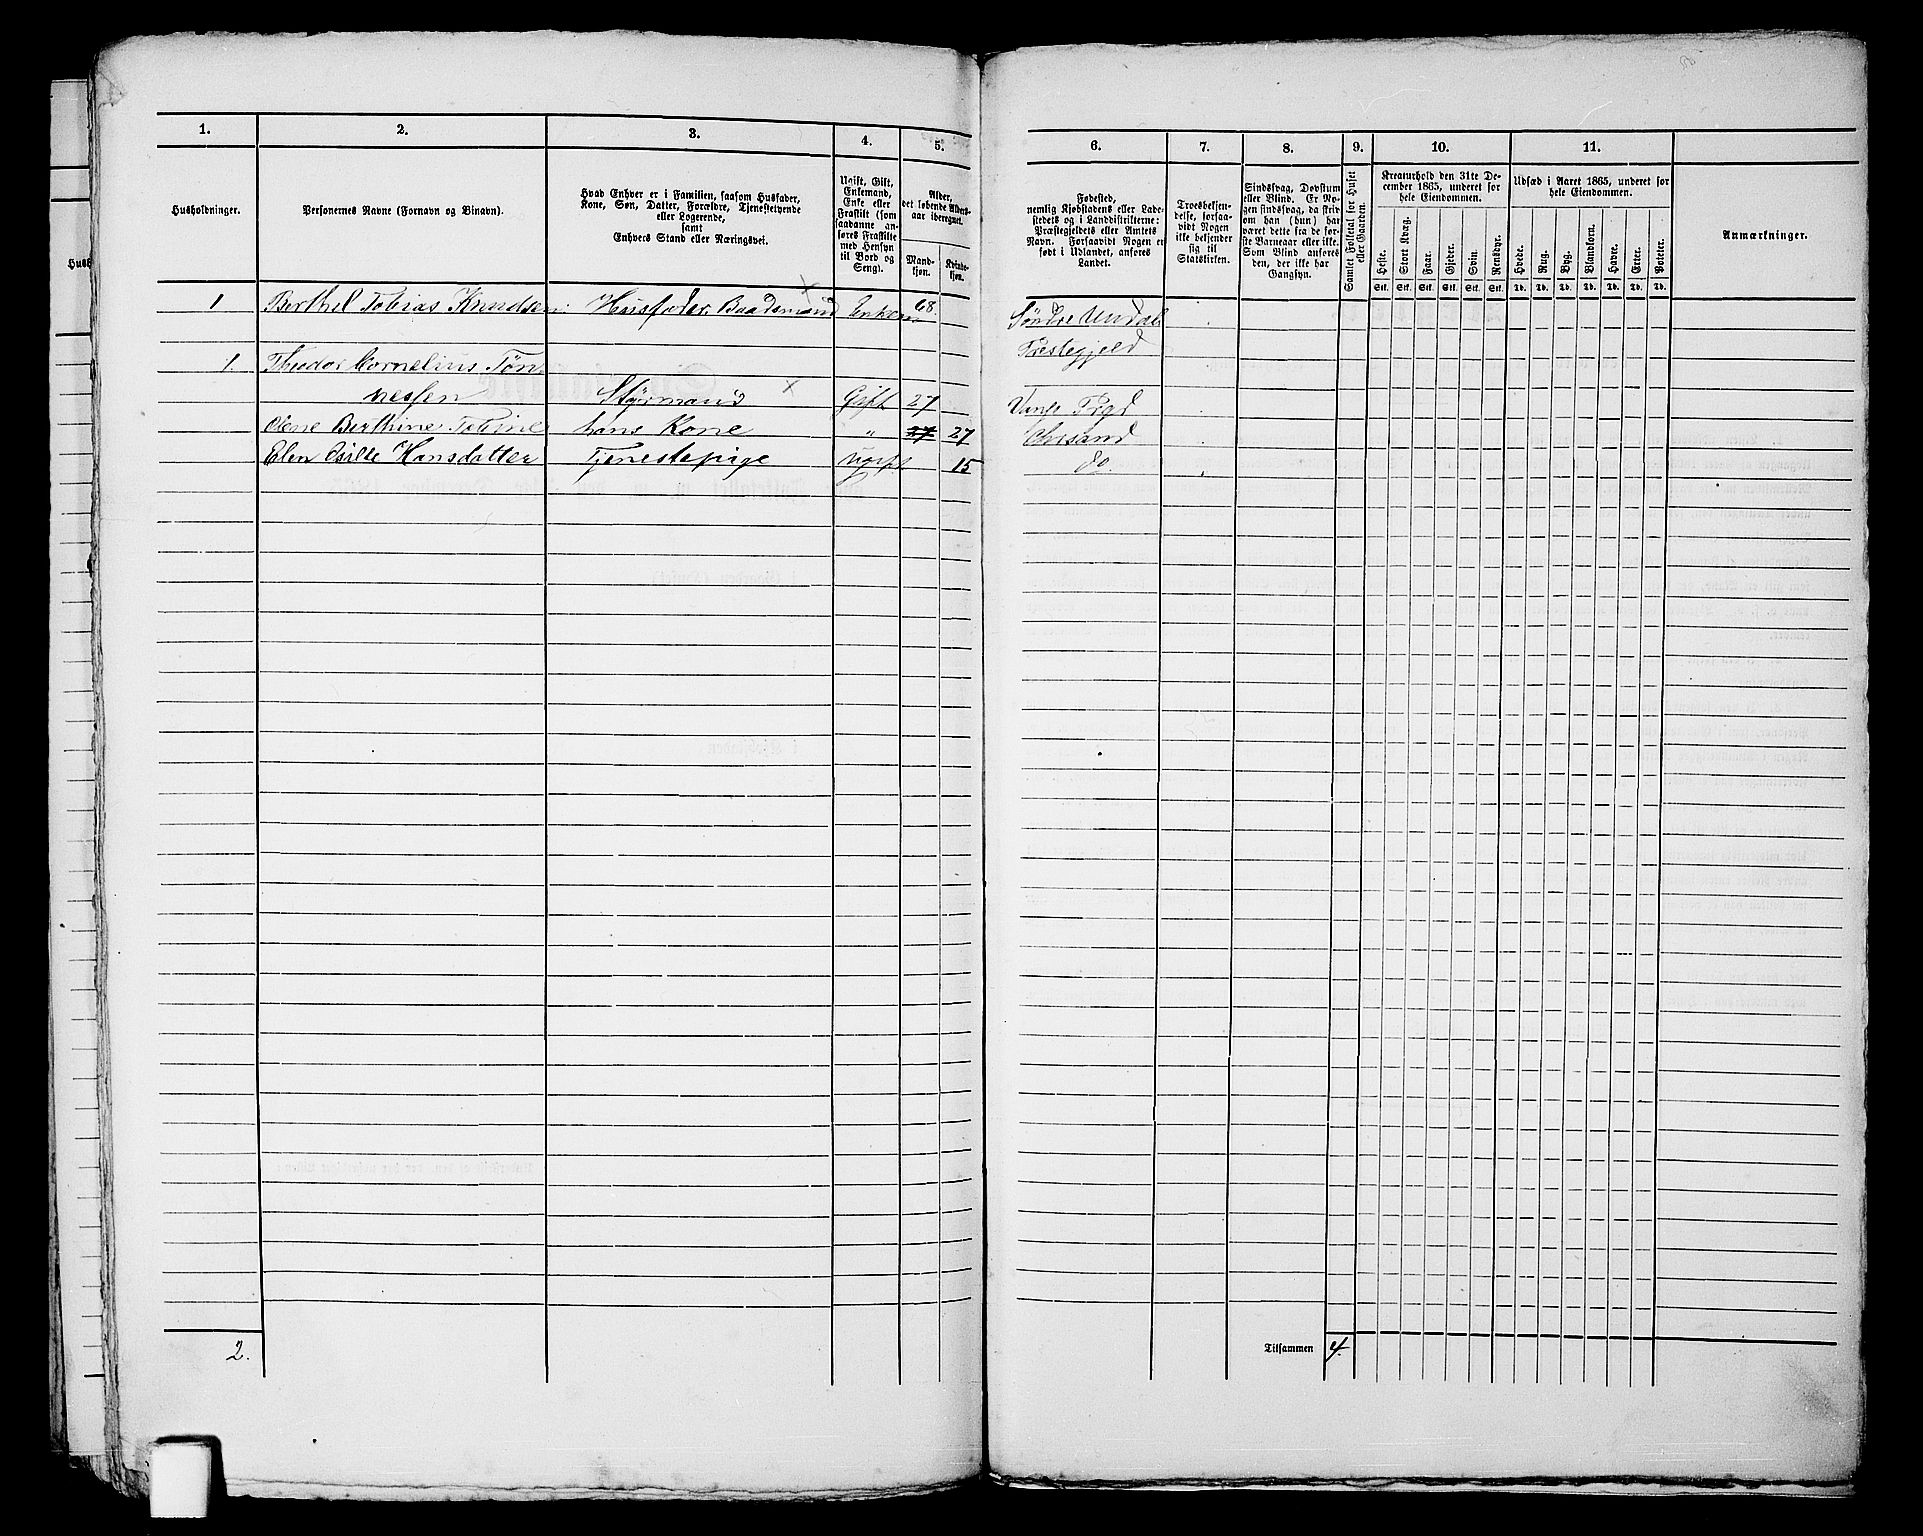 1. 2. 3. 4. 5.
Husholdninger.
Personernes Navne (Fornavn og Binavn).
Hvad Enhver er i Familien, saasom Husfader,
Kone, Søn, Datter, Forældre, Tjenestetyende
eller Logerende,
samt
Enhvers Stand eller Næringsvei.
Ugift, Gift,
Enkemand,
Enke eller
Fraskilt (som
saadanne an-
føres Fraskilte
med Hensyn
til Bord og
Seng).
Alder,
det løbende Alders-
aar iberegnet.
Mand-
kjøn.
Kvinde-
kjøn.
1 Berthel Tobias Knudsen Husfader. Baadsmand Enkem 68.
1. Theodor Cornelius Tøn
nessen Styrmand Gift 27
Olene Berthine Tobine hans Kone " 27 27
Elen Hansdatter Tjenestepige Ugift 15
2.
6. 7. 8. 9. 10. 11.
Fødested,
nemlig Kjøbstadens eller Lade-
stedets og i Landdistrikterne:
Præstegjeldets eller Amtets
Navn. Forsaavidt Nogen er
født i Udlandet, anføres
Landet.
Troesbekjen-
delse, forsaa-
vidt Nogen
ikke bekjender
sig til
Statskirken.
Sindssvag, Døvstum
eller Blind. Er No-
gen sindssvag, da skriv
om han (hun) har
været dette fra de før-
ste Barneaar eller ikke.
Som Blind anføres
den, der ikke har
Gangsyn.
Samlet Folketal for Huset
eller Gaarden.
Kreaturhold den 31te De-
cember 1865, underet for
hele Eiendommen.
Heste. Stort Kvæg. Faar. Gjeder. Svin. Rensdyr.
Stk. Stk. Stk. Stk. Stk. Stk.
Udsæd i Aaret 1865, underet for
hele Eiendommen.
Hvede. Rug. Byg. Blandkorn. Havre. Erter. Poteter.
Td. Td. Td. Td. Td. Td. Td.
Anmærkninger.
Søndre Undal
Prestegjeld
Vanse Prgd
Chrsand
do.
Tilsammen 4.